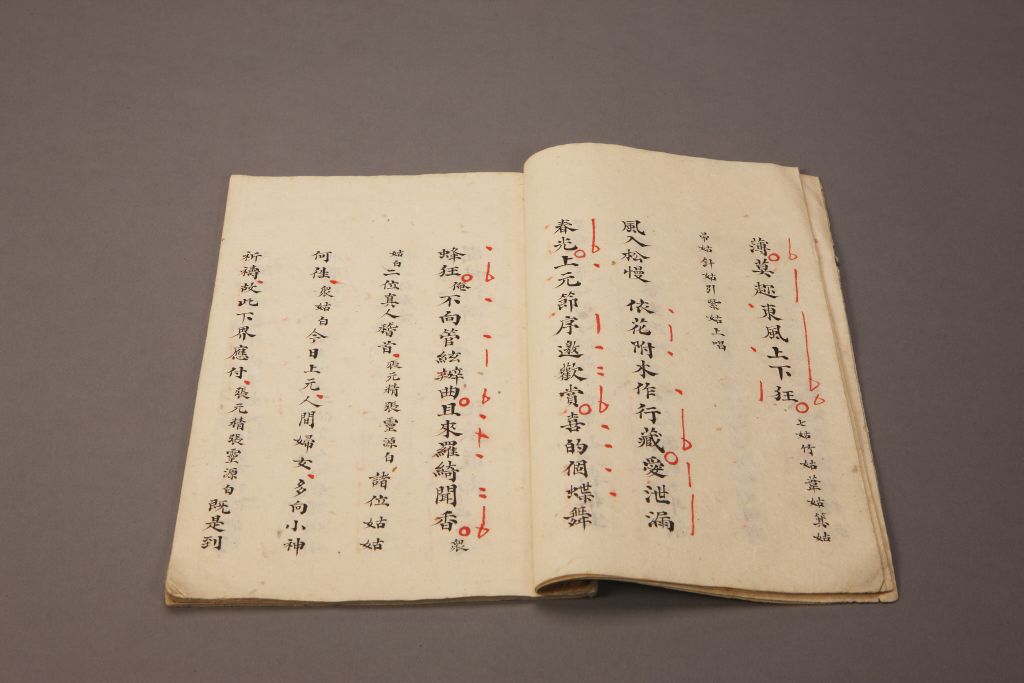 薄莫趂東風上下狂七姑竹姑葦姑箕姑
帚姑針姑引紫姑上唱
風入松慢 依花附木作行藏愛泄漏
春光上元節序邀歡賞喜的個蝶舞
蜂狂俺不向管絃辨曲且來羅綺聞香衆
姑白二位真人稽首張元精張靈源白諸位姑姑
何徃衆姑白今日上元人間婦女多向小神
祈禱故此下界應付張元精張靈源白既是到